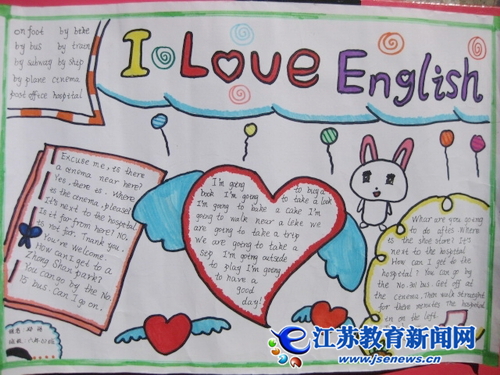 on foot by bike
by bus by train
by subway by ship
by plane cinema
post office hospital
I Love English
Excuse me, is there
a cinema near here?
Yes, there is. Where
is the cinema, please?
It's next to the hospital
Is it far from here? No,
its not far. Thank you.
You're welcome.
How can I get to
Zhong Shan park?
You can go by the No.
15 bus. Can I go on.
I'm going to buy a
book I'm going to take a look
I'm going to bake a cake I'm
going to walk near a lake we
are going to take a trip
We are going to take a
sep I'm going outside
to play I'm going
to have a
good
day!
What are you going
to do after. Where
is the shoe store? It's
next to the hospital
How can I get to the
hospital? You can go by
the No. 301 bus. Get off at
the cenema. Then walk straight
for three menutes The hospital
is on the left.
江苏教育新闻网
www.jsenews.cn